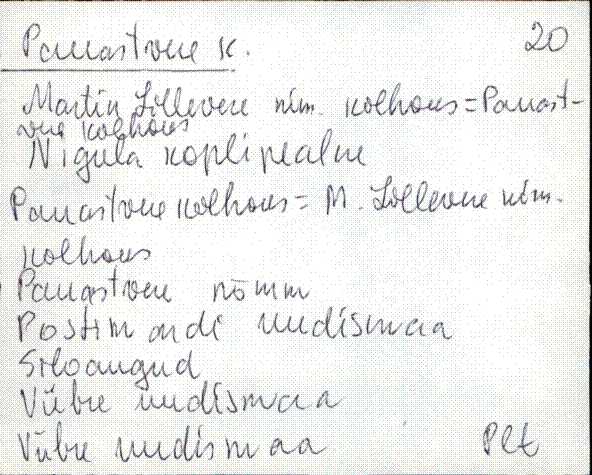 Panastvere k. 20
Martin Lillevere nim. kolhoos = Panast-
vere kolhoos
Nigula koplipealne
Panastvere kolhoos = M. Lillevere nim.
kolhoos
Panastvere nõmm
Postimardi uudismaa
Siloaugud
Vübre uudismaa
Vübre uudismaa Plt